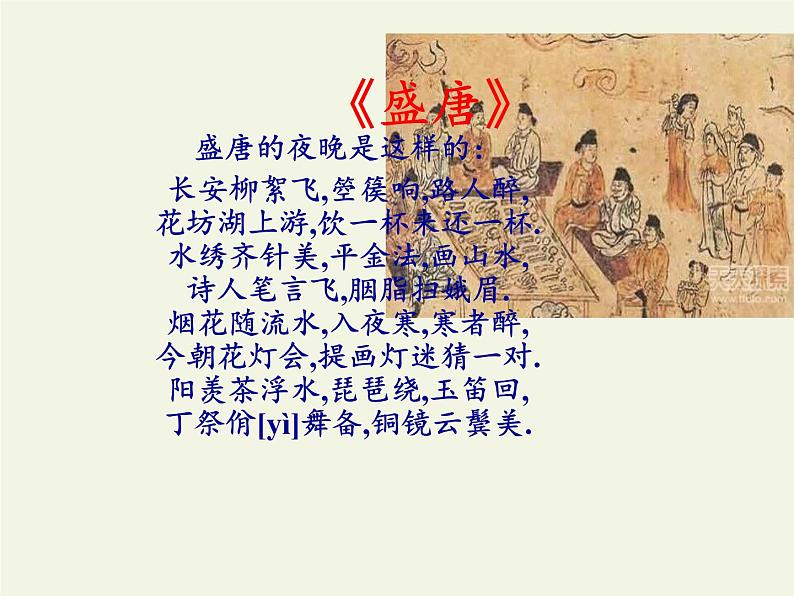 《盛唐》
盛唐的夜晚是这样的:
长安柳絮飞,箜篌响,路人醉,
花坊湖上游,饮一杯来还一杯.
水绣齐针美,平金法,画山水,
诗人笔言飞,胭脂扫娥眉.
烟花随流水,入夜寒,寒者醉,
今朝花灯会,提画灯迷猜一对.
阳羡茶浮水,琵琶绕,玉笛回,
丁祭佾[yì]舞备,铜镜云鬓美.
www.tiulo.com